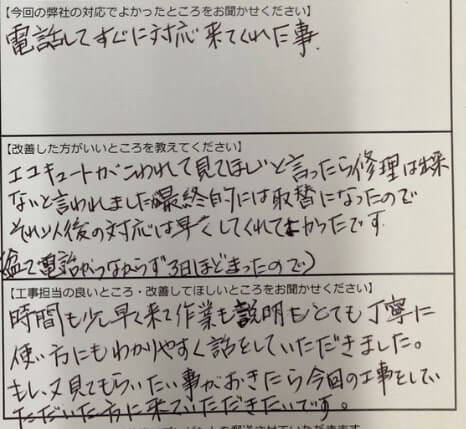 【今回の弊社の対応でよかったところをお聞かせください】
電話してすぐに対応来てくれた事
【改善した方がいいところを教えてください】
エコキュートがこわれて見てほしいと言ったら修理は出来
ないと言われました最終的には取替になったので
それ以後の対応は早くしてくれてよかったです
て電話がつながらず3日ほどまったので)
【工事担当の良いところ・改善してほしいところをお聞かせください】
時間も少し早く来て作業も説明もとても丁寧に
使い方にもわかりやすく話をしていただきました。
もし又見てもらいたい事がおきたら今回の工事をしてい
ただいた方に来ていただきたいです。